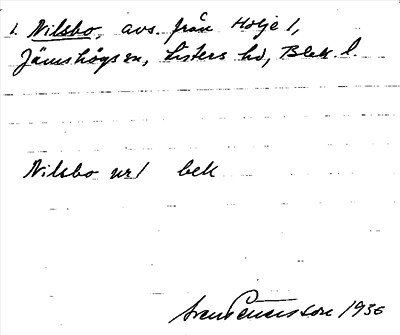 1. Nilsbo, avs. från Holje 1,
Jämshögs sn, Listers hd, Blek. l.
Nilsbo nr 1 bek
Sven Benson 1936